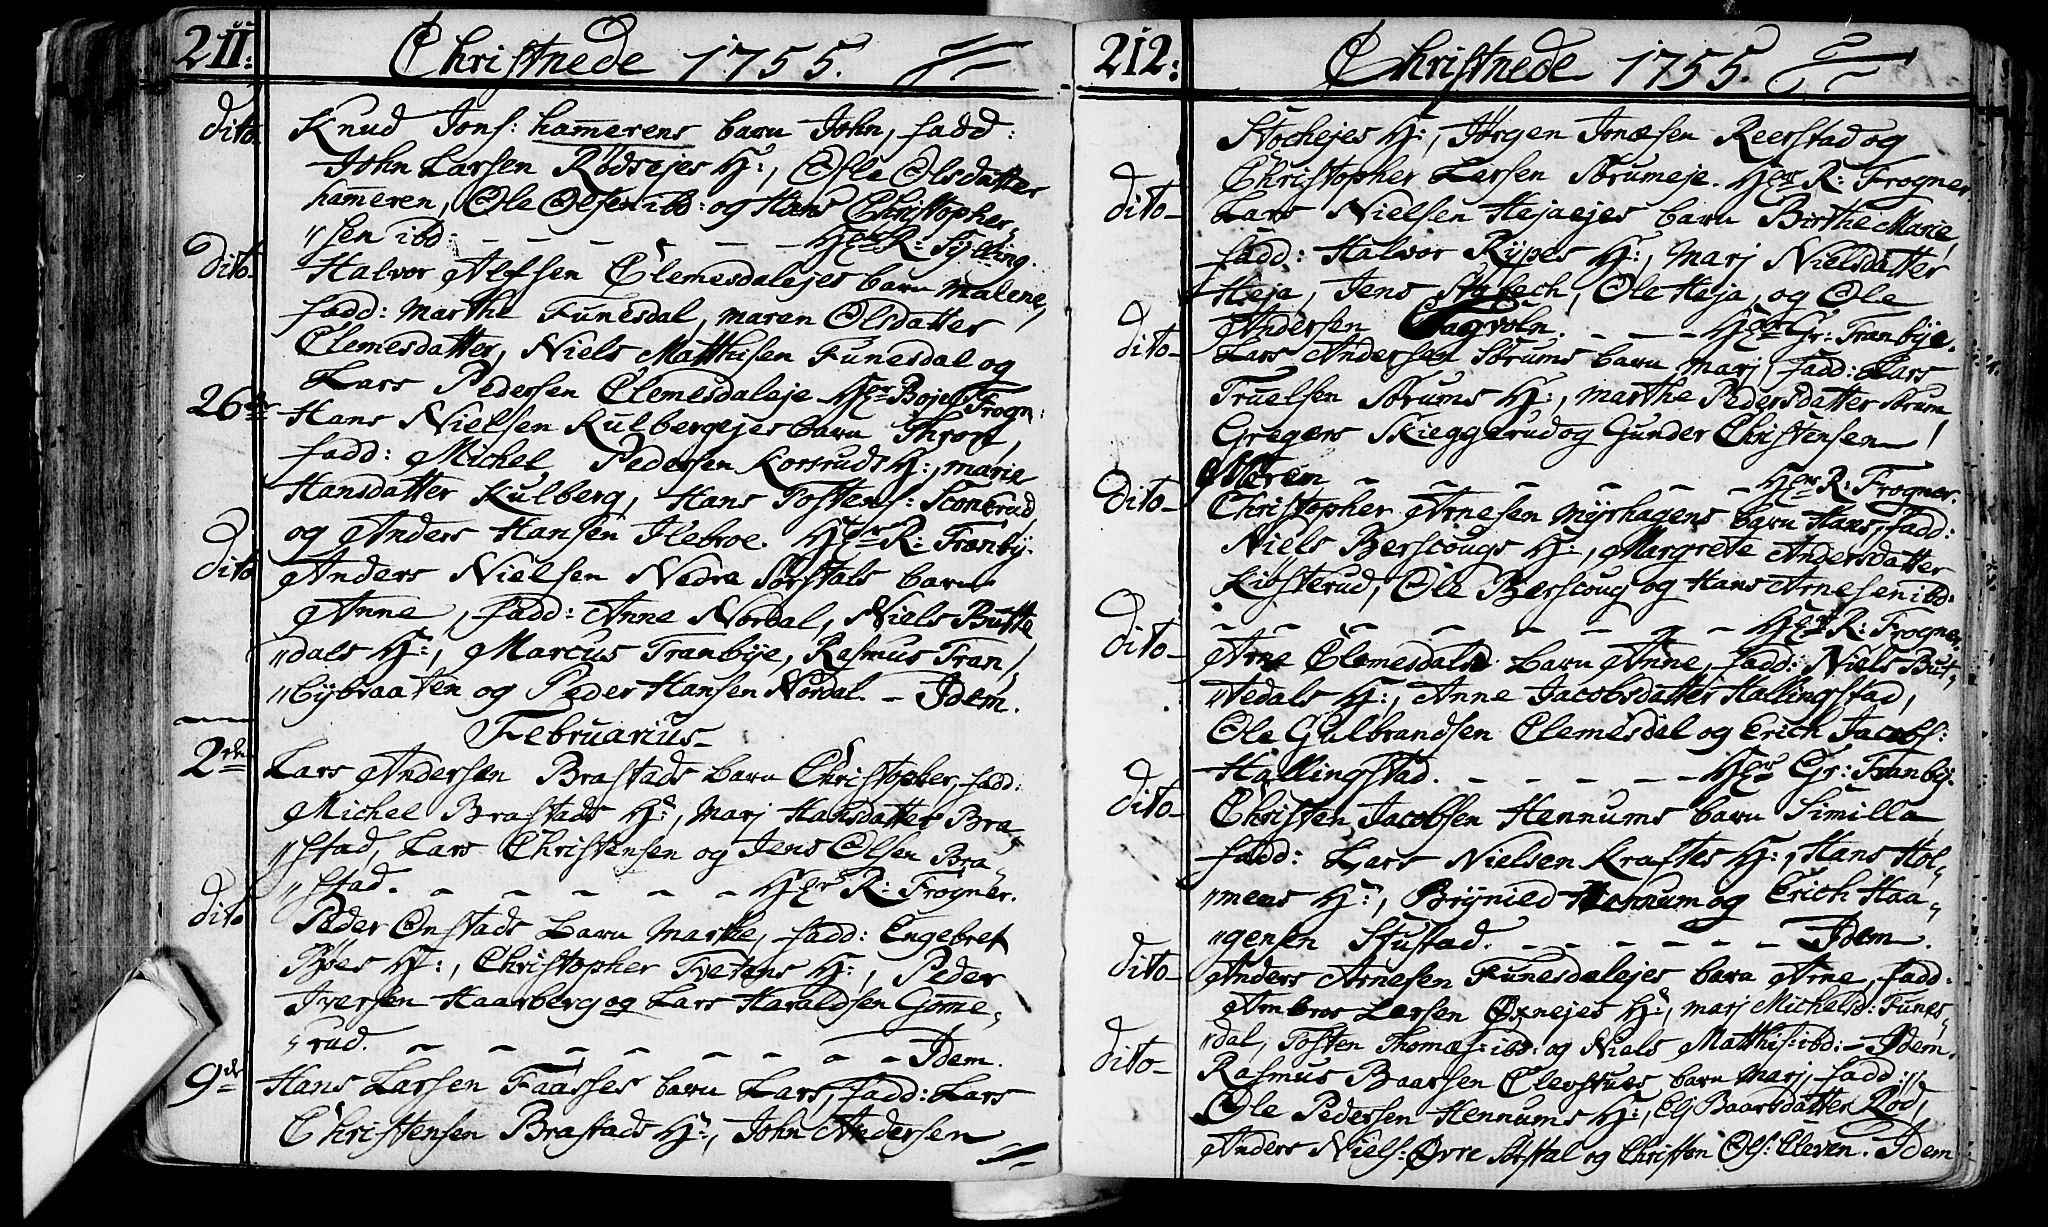 211:
Christnede 1755.
dito. Knud Jons: hamerens barn John, fadd:
John Larsen Rødsejes H:, Ofle Olsdatter
hameren, Ole Olsen ibd: og Hans Christopher„
„sen ibd: - - - - - - - Hqr R: Tyfding.
dito- Halvor Alefsen Clemesdalejes barn Malene,
fadd: Marthe Funesdal, Maren Olsdatter
Clemesdatter, Niels Matthisen Funesdal og
Lars Pedersen Clemesdaleje Hqr Bojes Frogn:
26de Hans Nielsen Kulbergejes barn Thron,
fadd: Michel Pedersen Korsruds H:, Marie
Hansdatter Kulberg, Hans Tostens:
og Anders Hansen Hebroe. Hqr R: Tranby.
dito Anders Nielsen Nedre Sørstals barn
Anne, fadd: Anne Nordal, Niels Butte
„dals H:, Marcus Tranbye, Rasmus Tran,
„bybraaten og Peder Hansen Nordal. - Idem.
Februarius-
2den Lars Andersen Brastads barn Christopher, fadd:
Michel Brastads H:, Marj Hansdatter Bra„
„stad, Lars Christensen og Jens Olsen Bra„
„stad. - - - - - - Hqr R: Frogner.
dito Peder Onstads barn Marthe, fadd: Engebret
Bøes H:, Christopher Tvetens H:, Peder
Iversen Haarberg og Lars Haraldsen Gome„
„rud. - - - - - - - - Idem.
9de Hans Larsen Faasses barn Lars, fadd: Lars
Christensen Brastads H:, John Andersen
212:
Christnede 1755.
Stochejes H:, Jørgen Jonæsen Reerstad og
Christopher Larsen Sørumeje. Hqr R: Frogner.
dito- Lars Nielsen Hejaejes barn Birthe Marie,
fadd: Halvor Rypes H:, Marj Nielsdatter
Heja, Jens, Ole Heja, og Ole
Andersen Fagvoln. - - - Hqr Gr: Tranbye.
dito- Lars Andersen Sørums barn Marj, fadd: Lars
Truelsen Sørums H:, Marthe Pedersdatter Sørum,
Gregers Skieggerud og Gunder Christensen
Meren - - - - - - Hqr R: Frogner.
dito- Christopher Arnesen Myrhagens barn Hans, fadd:
Niels Berscougs H:, Margrete Andersdatter
Kiøsterud, Ole Berscoug og Hans Arnesen ibd:
- - - - - - - Hqr R: Frogner.
dito- Arne Clemesdals barn Anne, fadd: Niels But„
„tedals H:, Anne Jacobsdatter Hallingstad,
Ole Gulbrandsen Clemesdal og Erich Jacobs:
Hallingstad. - - - - - - Hqr Gr: Tranby.
dito- Christen Jacobsen Hennums barn Similla
fadd: Lars Nielsen Kraftes H:, Hans Hol„
„mens H:, Brynild Hennum og Erich Haa„
„gensn Stustad. - - - - - - Idem.
dito- Anders Arnesen Funesdalejes barn Arne, fadd:
Ambros Larsen Øxnejes H:, Marj Michelsd: Funes„
„dal, Tosten Thomæs: ibd: og Niels Matthis: ibd: - Idem.
dito- Rasmus Baarsen Clevstues barn Marj, fadd:
Ole Pedersen Hennums H:, Elj Baarsdatter Rød,
Anders Niels: Øvre Sørstal og Christen Ols: Cleven. Idem